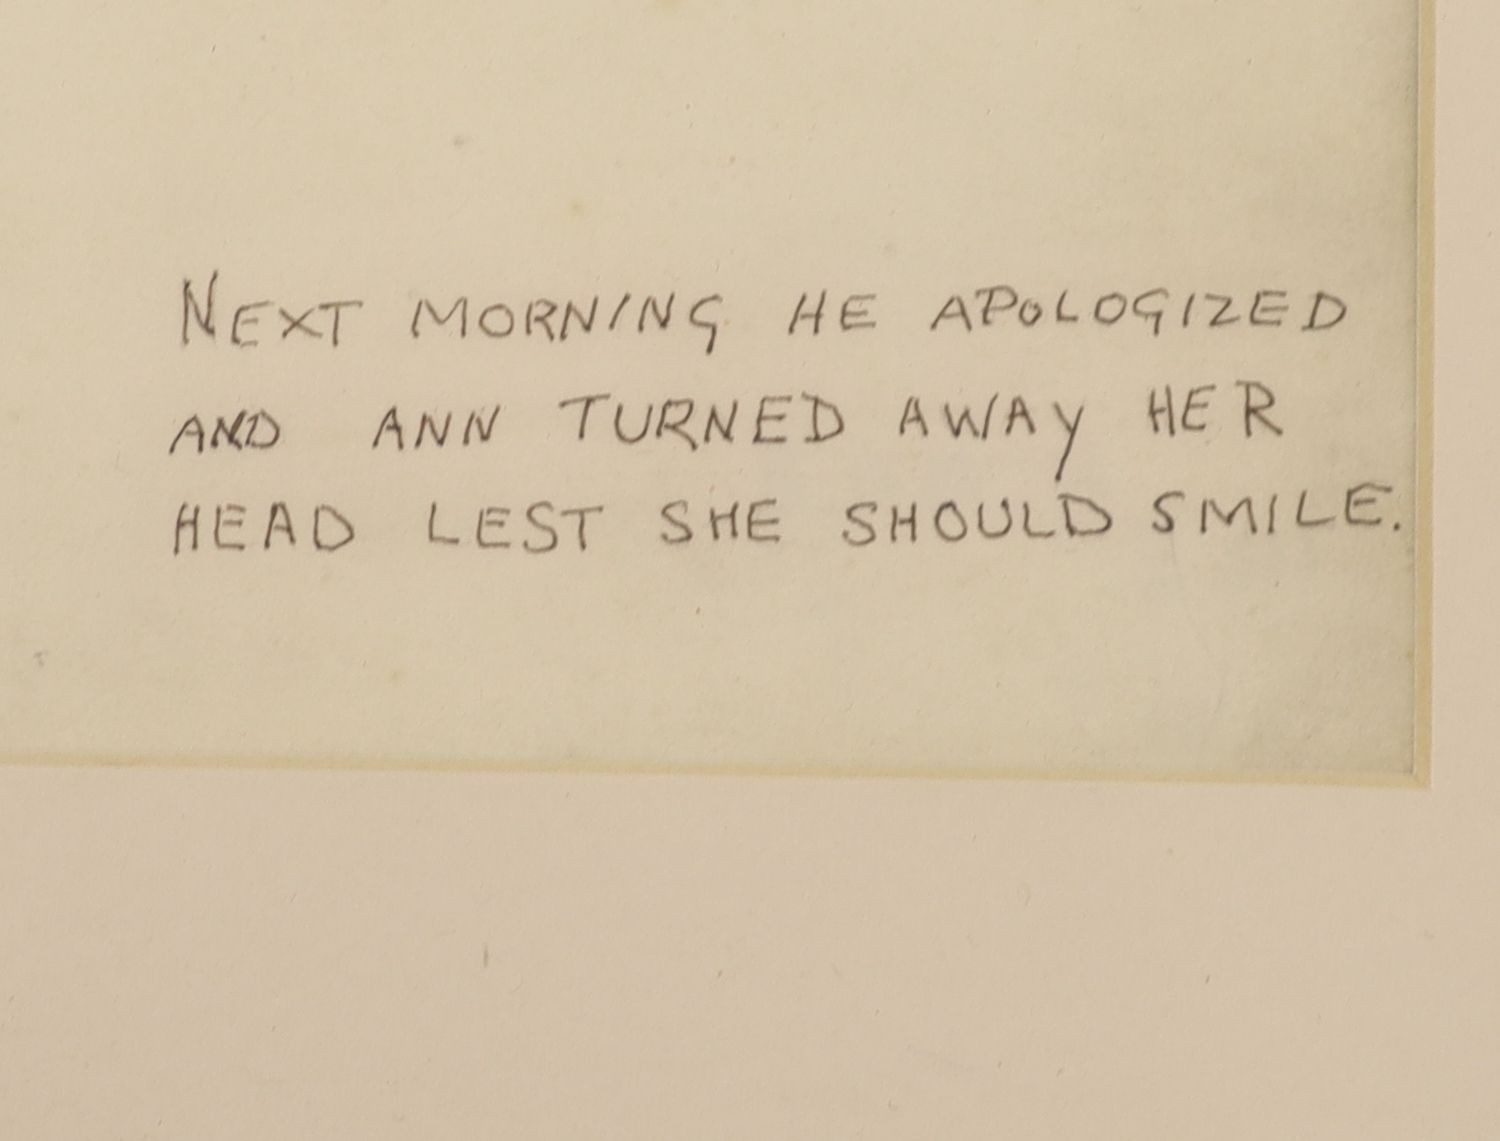 NEXT MORNING HE APOLOGIZED
AND ANN TURNED AWAY HER
HEAD LEST SHE SHOULD SMILE.